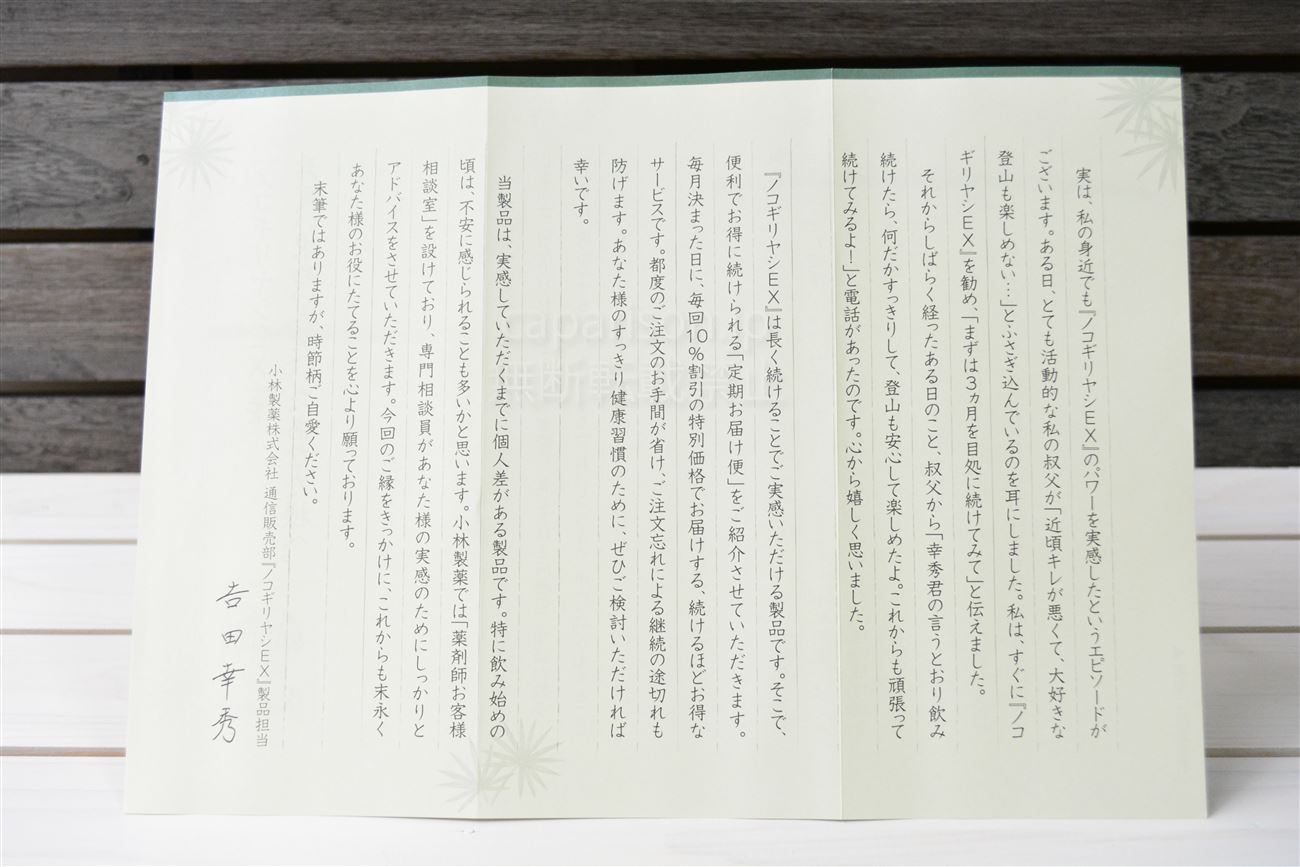 実は、私の身近でも『ノコギリヤシEX』のパワーを実感したというエピソードが
ございます。ある日、とても活動的な私の叔父が「近頃キレが悪くて、大好きな
登山も楽しめない…」とふさぎ込んでいるのを耳にしました。私は、すぐに『ノコ
ギリヤシEX』を勧め、「まずは3ヵ月を目処に続けてみて」と伝えました。
それからしばらく経ったある日のこと、叔父から「幸秀君の言うとおり飲み
続けたら、何だかすっきりして、登山も安心して楽しめたよ。これからも頑張って
続けてみるよ!」と電話があったのです。心から嬉しく思いました。
『ノコギリヤシEX』は長く続けることでご実感いただける製品です。そこで、
便利でお得に続けられる「定期お届け便」をご紹介させていただきます。
毎月決まった日に、毎回10%割引の特別価格でお届けする、続けるほどお得な
サービスです。都度のご注文のお手間が省け、ご注文忘れによる継続の途切れも
防げます。あなた様のすっきり健康習慣のために、ぜひご検討いただければ
幸いです。
当製品は、実感していただくまでに個人差がある製品です。特に飲み始めの
頃は、不安に感じられることも多いかと思います。小林製薬では「薬剤師お客様
相談室」を設けており、専門相談員があなた様の実感のためにしっかりと
アドバイスをさせていただきます。今回のご縁をきっかけに、これからも末永く
あなた様のお役にたてることを心より願っております。
末筆ではありますが、時節柄ご自愛ください。
小林製薬株式会社 通信販売部『ノコギリヤシEX』製品担当
吉田幸秀
無断転載禁止